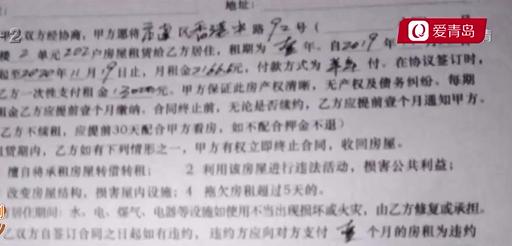 地址:
爱青岛
甲乙双方经协商,甲方愿将 区香港中路92号(
楼2单元202户房屋租赁给乙方居住,租期为 年,自2019年
起至2020年11月9日止,月租金2166元,付款方式为 付。在协议签订时,
乙方一次性支付租金 元。甲方保证此房产权清晰,无产权及债务纠纷、每期
租金乙方应提前壹个月缴纳、合同终止前,无论是否续约,乙方应提前壹个月通知甲方。
乙方不续租,应提前30天配合甲方看房,如不配合押金不退)
租赁期内,乙方如有下列情形之一,甲方有权立即终止合同,收回房屋。
擅自将承租房屋转借转租; 2 利用该房屋进行违法活动,损害公共利益;
改变房屋结构,损害屋内设施; 4 拖欠房租超过5天的。
居住期间:水、电、煤气、电器等设施如使用不当出现损坏或火灾,由乙方修复或承担。
乙双方自签订合同之日起如有违约,违约方应向对方支付 个月的房租为违约